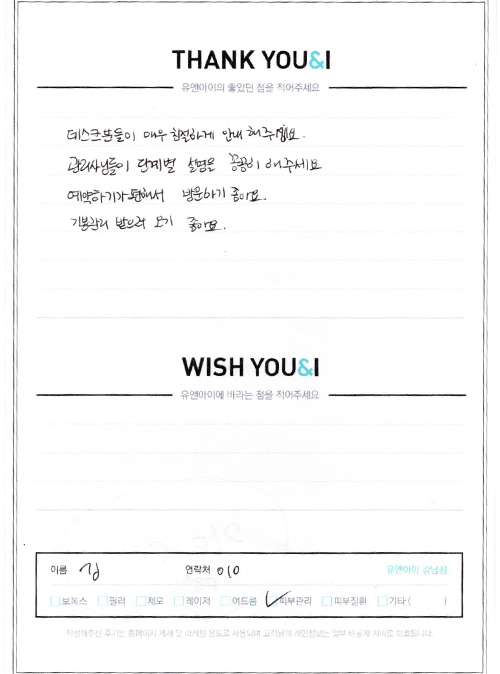 THANK YOU&I
유앤아이의 좋았던 점을 적어주세요
데스크분들이 매우 친절하게 안내 해주세요.
관리사님들이 단계별 설명을 꼼꼼히 해주세요
예약하기가 편해서 방문하기 좋아요.
기본관리 받으러 오기 좋아요.
WISH YOU&I
유앤아이에 바라는 점을 적어주세요
이름 김 연락처 010 유앤아이 강남점
보톡스 필러 제모 레이저 여드름 피부관리 피부질환 기타 ( )
작성해주신 후기는 홈페이지 게재 및 마케팅 용도로 사용되며 고객님의 개인정보는 일부 비공개 처리로 보호됩니다.